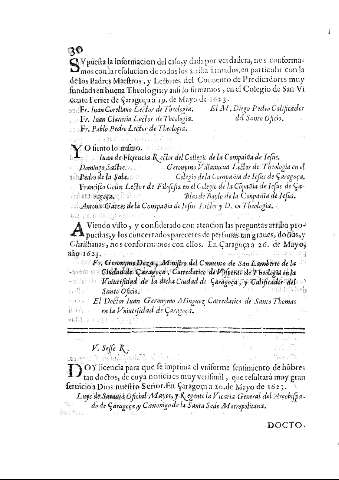 30
SVpuesta la informacion del caso, y dada por verdadera, nos conforma-
mos con la resolucion de todos los arriba firmados, en particular con la
de los Padres Maestros, y Lectores del Conuento de Predicadores muy
fundada en buena Theologia y assi lo firmamos, en el Colegio de San Vi
cente Ferrer de Çaragoça 19. de Mayo de 1623.
Fr. Iuan Lector de Theologia. El M. Diego Pedro Calificador
Fr. Iuan Lector de Theologia. del Santo Oficio.
Fr. Pablo Pedro Lector de Theologia.
YO siento lo mismo.
Iuan de Plasencia Rector del Collegio de la Compañia de Iesus.
Domingo Geronymo Villanueua Lector de Theologia en el
Pedro de la Sala. Colegio de la Compañia de Iesus de Çaragoça.
Francisco Lector de Filosofia en el Colegio de la Compañia de Iesus de Ça-
ragoça. Blas de Vayle de la Compañia de Iesus.
Antonio Garces de la Compañia de Iesus Lector y D. en Theologia.
AViendo visto, y considerado con atencion las preguntas arriba pro-
puestas, y los concertados pareceres de personas tan graues, doctas, y
Christianas, nos conformamos con ellos. En Çaragoça 26. de Mayo,
año 1623.
Fr. Geronymo Deza, Ministro del Conuento de San Lamberto de la
Ciudad de Çaragoça, Catredatico de Visperas de Theologia en la
Vniuersidad de la dicha Ciudad de Çaragoça, y Calificador del
Santo Oficio.
El Doctor Iuan Geronymo Minguez Catredatico de Santo Thomas
en la Vniuersidad de Çaragoça.
V. Sesse R.
DOY licencia para que se imprima el vniforme sentimento de hõbres
tan doctos, de cuya noticia es muy verisimil, que resultarà muy gran
seruicio a Dios nuestro Señor. En Çaragoça 20. de Mayo de 1623.
Luys de Sarauia Oficial Mayor, y Regente la Vicaria General del Arçobispa-
do de Çaragoça y Canonigo de la Santa Sede Metropolitana.
DOCTO-